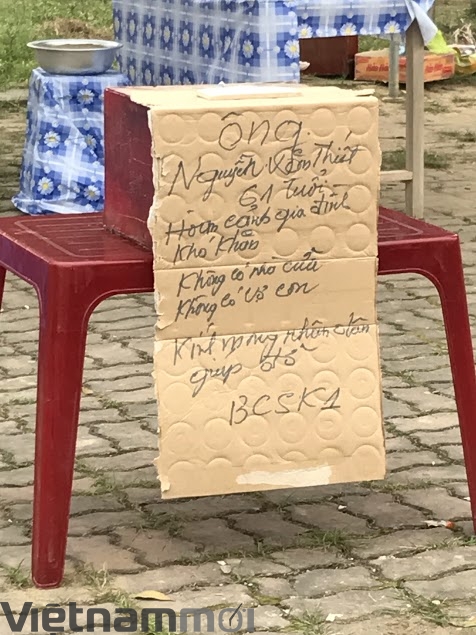 Ông
Nguyễn Văn Thiết
61 tuổi
Hoàn cảnh gia đình
Khó Khăn
Không có nhà cửa
Không có vợ con
Kính mong nhân dân
giúp đỡ
BCSK1
Vietnammới